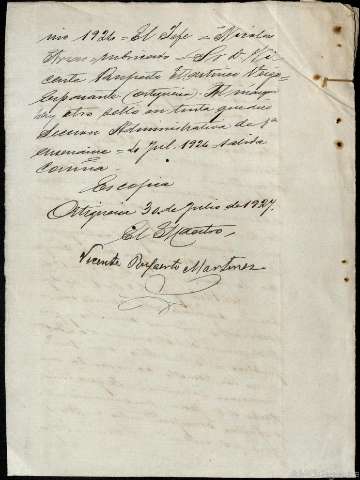 nio 1926 = El Jefe = Nicolas
rubricado = Sr D. Vi
cente Panfecto Martinez Veiga
(Ortigueira) Al margen
hay otro sello en tinta que dice
Seccion Administrativa de 1ª
enseñanza = 2 Jul. 1926 salida
Coruña
Es copia
Ortigueira 30 de Julio de 1927.
El Maestro,
Vicente Martinez